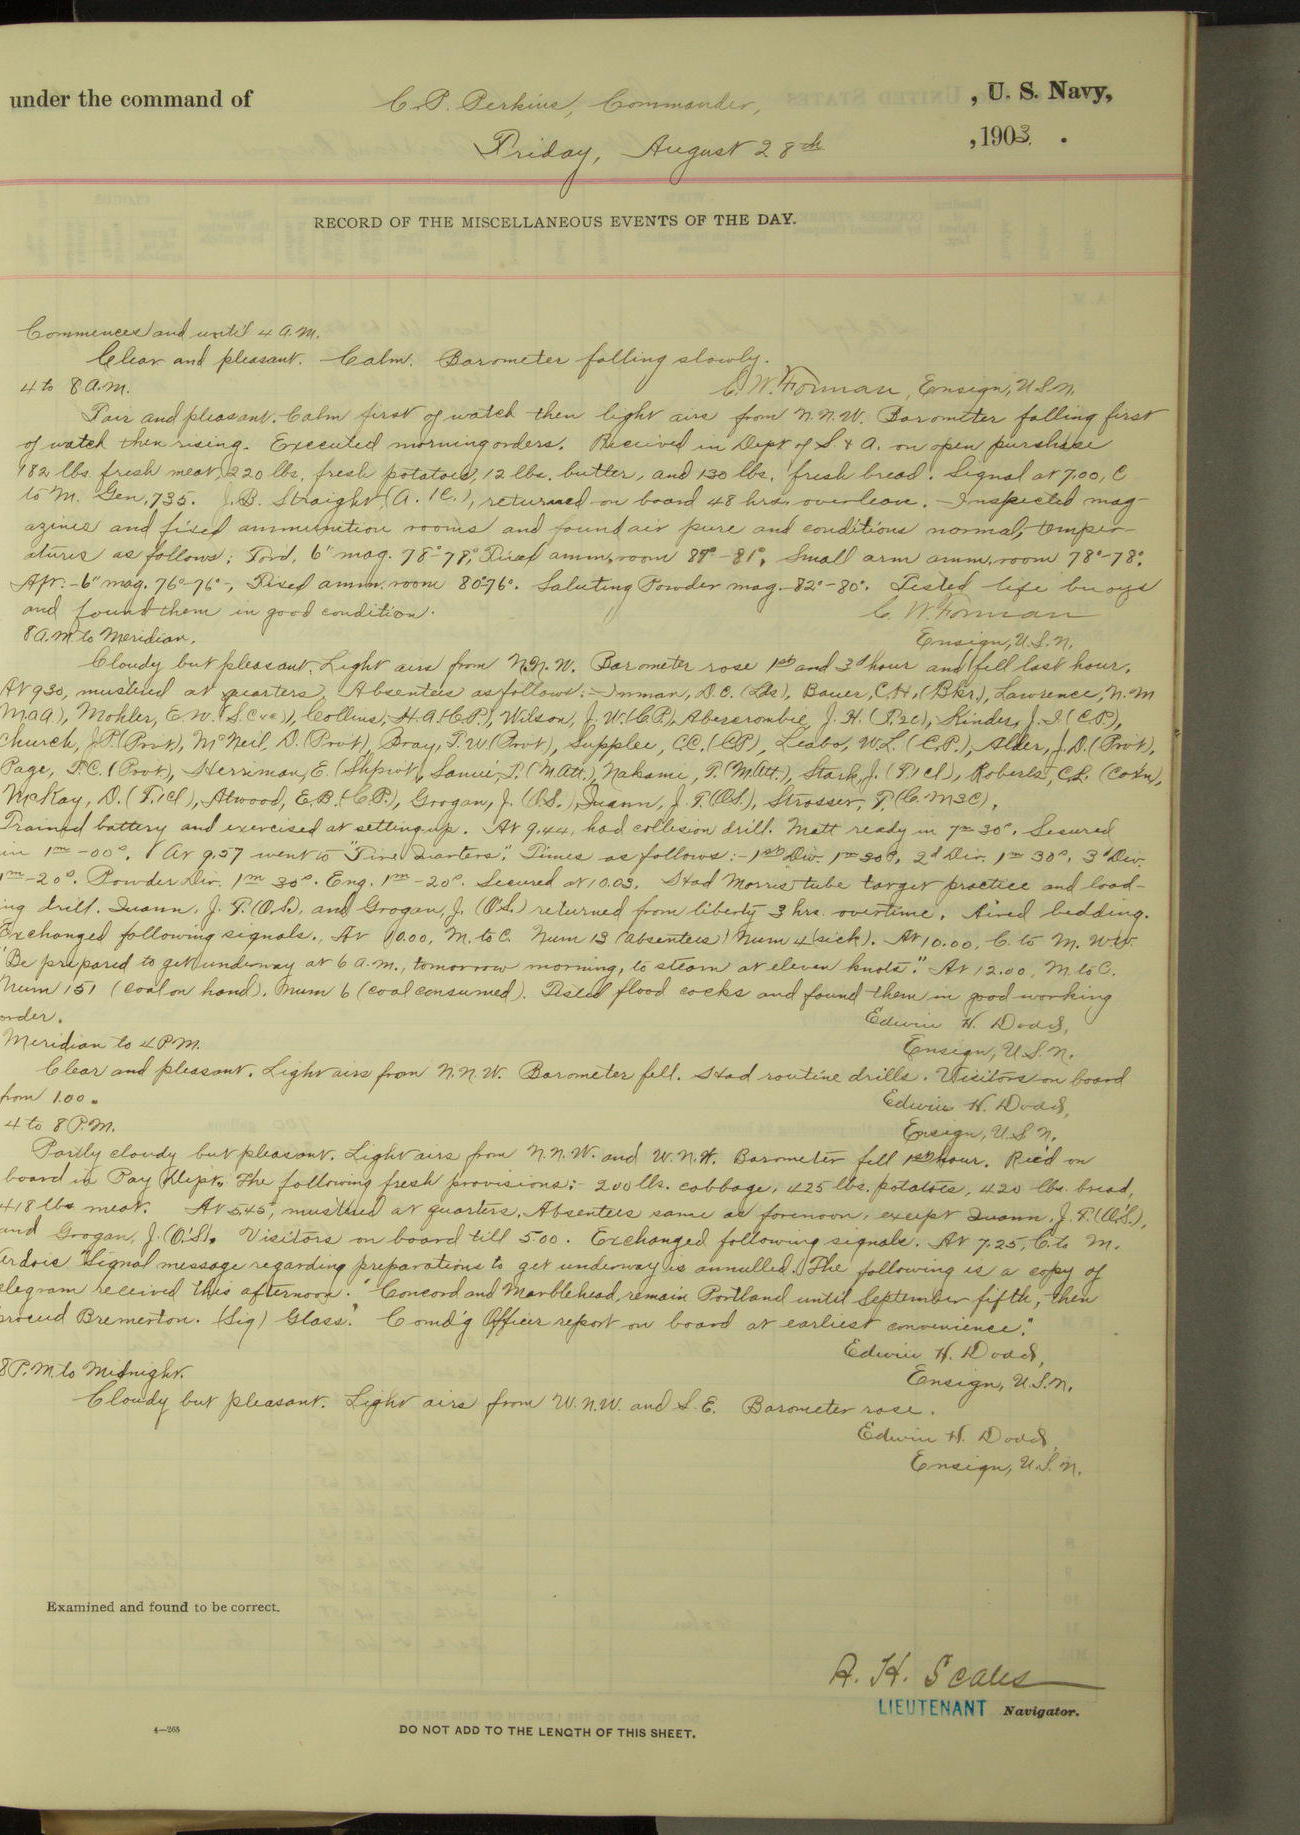 under the command of C. P. Perkins, Commander, , U. S. Navy,
Friday, August 28th , 1903.
RECORD OF THE MISCELLANEOUS EVENTS OF THE DAY.
Commences and until 4 A.M.
Clear and pleasant. Calm. Barometer falling slowly.
4 to 8 A.M. C. W. Forman, Ensign, U.S.N.
Fair and pleasant. Calm first of watch then light airs from N.N.W. Barometer falling first
of watch then rising. Executed morning orders. Received in Dept of S. & A. on open purchase
182 lbs. fresh meat, 220 lbs. fresh potatoes, 12 lbs. butter, and 130 lbs. fresh bread. Signal at 7.00, C
to M. Gen. 735. J. B. Straight, returned on board 48 hrs. overleave. Inspected mag-
azines and fixed ammunition rooms and found air pure and conditions normal, temper-
atures as follows: Ford. 6" mag. 78°-78°, Fixed amm. room -81°, Small arm amm. room 78°-78°.
Aft:- 6" mag. 76°-76°-, Fixed amm. room 80°-76°. Saluting Powder mag. 82°-80°. Tested life buoys
and found them in good condition. C. W. Forman
8 A.M. to Meridian. Ensign, U.S.N.
Cloudy but pleasant. Light airs from N.N.W. Barometer rose 1st and 3d hour and fell last hour.
At 9.30, mustered at quarters, Absentees as follows:- Inman, D.C. (Lds), Bauer, C.H. (Bkr.), Lawrence, N.M
Maa), Mohler, E.W. Collins, H.A. (C.P.), Wilson, J.W. (C.P.), Abercrombie, J.H. Kinder, J.I. (C.P.),
Church, J.P. (Provt), McNeil, D. (Provt), Bray, T.W. (Provt), Supplee, C.C. (C.P.), Leabo, W.L. (C.P.), Alder, J.D. (Provt),
Page, T.C. (Provt), Herriman, E. (Shprvt), (M.Att.), Nakami, T. (M.Att.), Stark, J. (F.1cl), Roberts, C.L. (Coxn),
McKay, D. (F.1cl), Atwood, E.B. (C.P.), Grogan, J. (O.S.), Quann, J.T. (O.S.), Strosser, F. (C.M3C).
Trained battery and exercised at setting up. At 9.44, had collision drill. Matt ready in 7m 30s. Secured
in 1m-00s. At 9.57 went to "Fire Quarters". Times as follows:- 1st Div. 1m 30s, 2d Div. 1m 30s, 3d Div.
1m-20s. Powder Div. 1m 30s. Eng. 1m-20s. Secured at 10.03. Had Morris tube target practice and load-
ing drill. Quann, J.T. (O.S.), and Grogan, J. (O.S.) returned from liberty 3 hrs. overtime. Aired bedding.
Exchanged following signals. At 10.00, M. to C. Num 13 (absentees) Num 4 (sick). At 10.00, C. to M. WW
"Be prepared to get underway at 6 a.m., tomorrow morning, to steam at eleven knots." At 12.00, M. to C.
Num 151 (coal on hand). Num 6 (coal consumed). Tested flood cocks and found them in good working
order. Edwin H. Dodd,
Meridian to 4 P.M. Ensign, U.S.N.
Clear and pleasant. Light airs from N.N.W. Barometer fell. Had routine drills. Visitors on board
from 1.00. Edwin H. Dodd,
4 to 8 P.M. Ensign, U.S.N.
Partly cloudy but pleasant. Light airs from N.N.W. and W.N.W. Barometer fell 1st hour. Rec'd on
board in Pay Dept. The following fresh provisions:- 200 lbs. cabbage, 425 lbs. potatoes, 420 lbs. bread,
418 lbs meat. At 5.45, mustered at quarters, Absentees same as forenoon, except Quann, J.T. (O.S.),
and Grogan, J. (O.S.). Visitors on board till 5.00. Exchanged following signals. At 7.25, C. to M.
ardois "Signal message regarding preparations to get underway is annulled. The following is a copy of
elegram received this afternoon: "Concord and Marblehead, remain Portland until September fifth, then
proceed Bremerton. (Sig) Glass." Comd'g Officer report on board at earliest convenience".
Edwin H. Dodd,
8 P.M. to Midnight. Ensign, U.S.N.
Cloudy but pleasant. Light airs from W.N.W. and S.E. Barometer rose.
Edwin H. Dodd,
Ensign, U.S.N.
Examined and found to be correct.
A. H. Scales
LIEUTENANT Navigator.
4—265
DO NOT ADD TO THE LENGTH OF THIS SHEET.